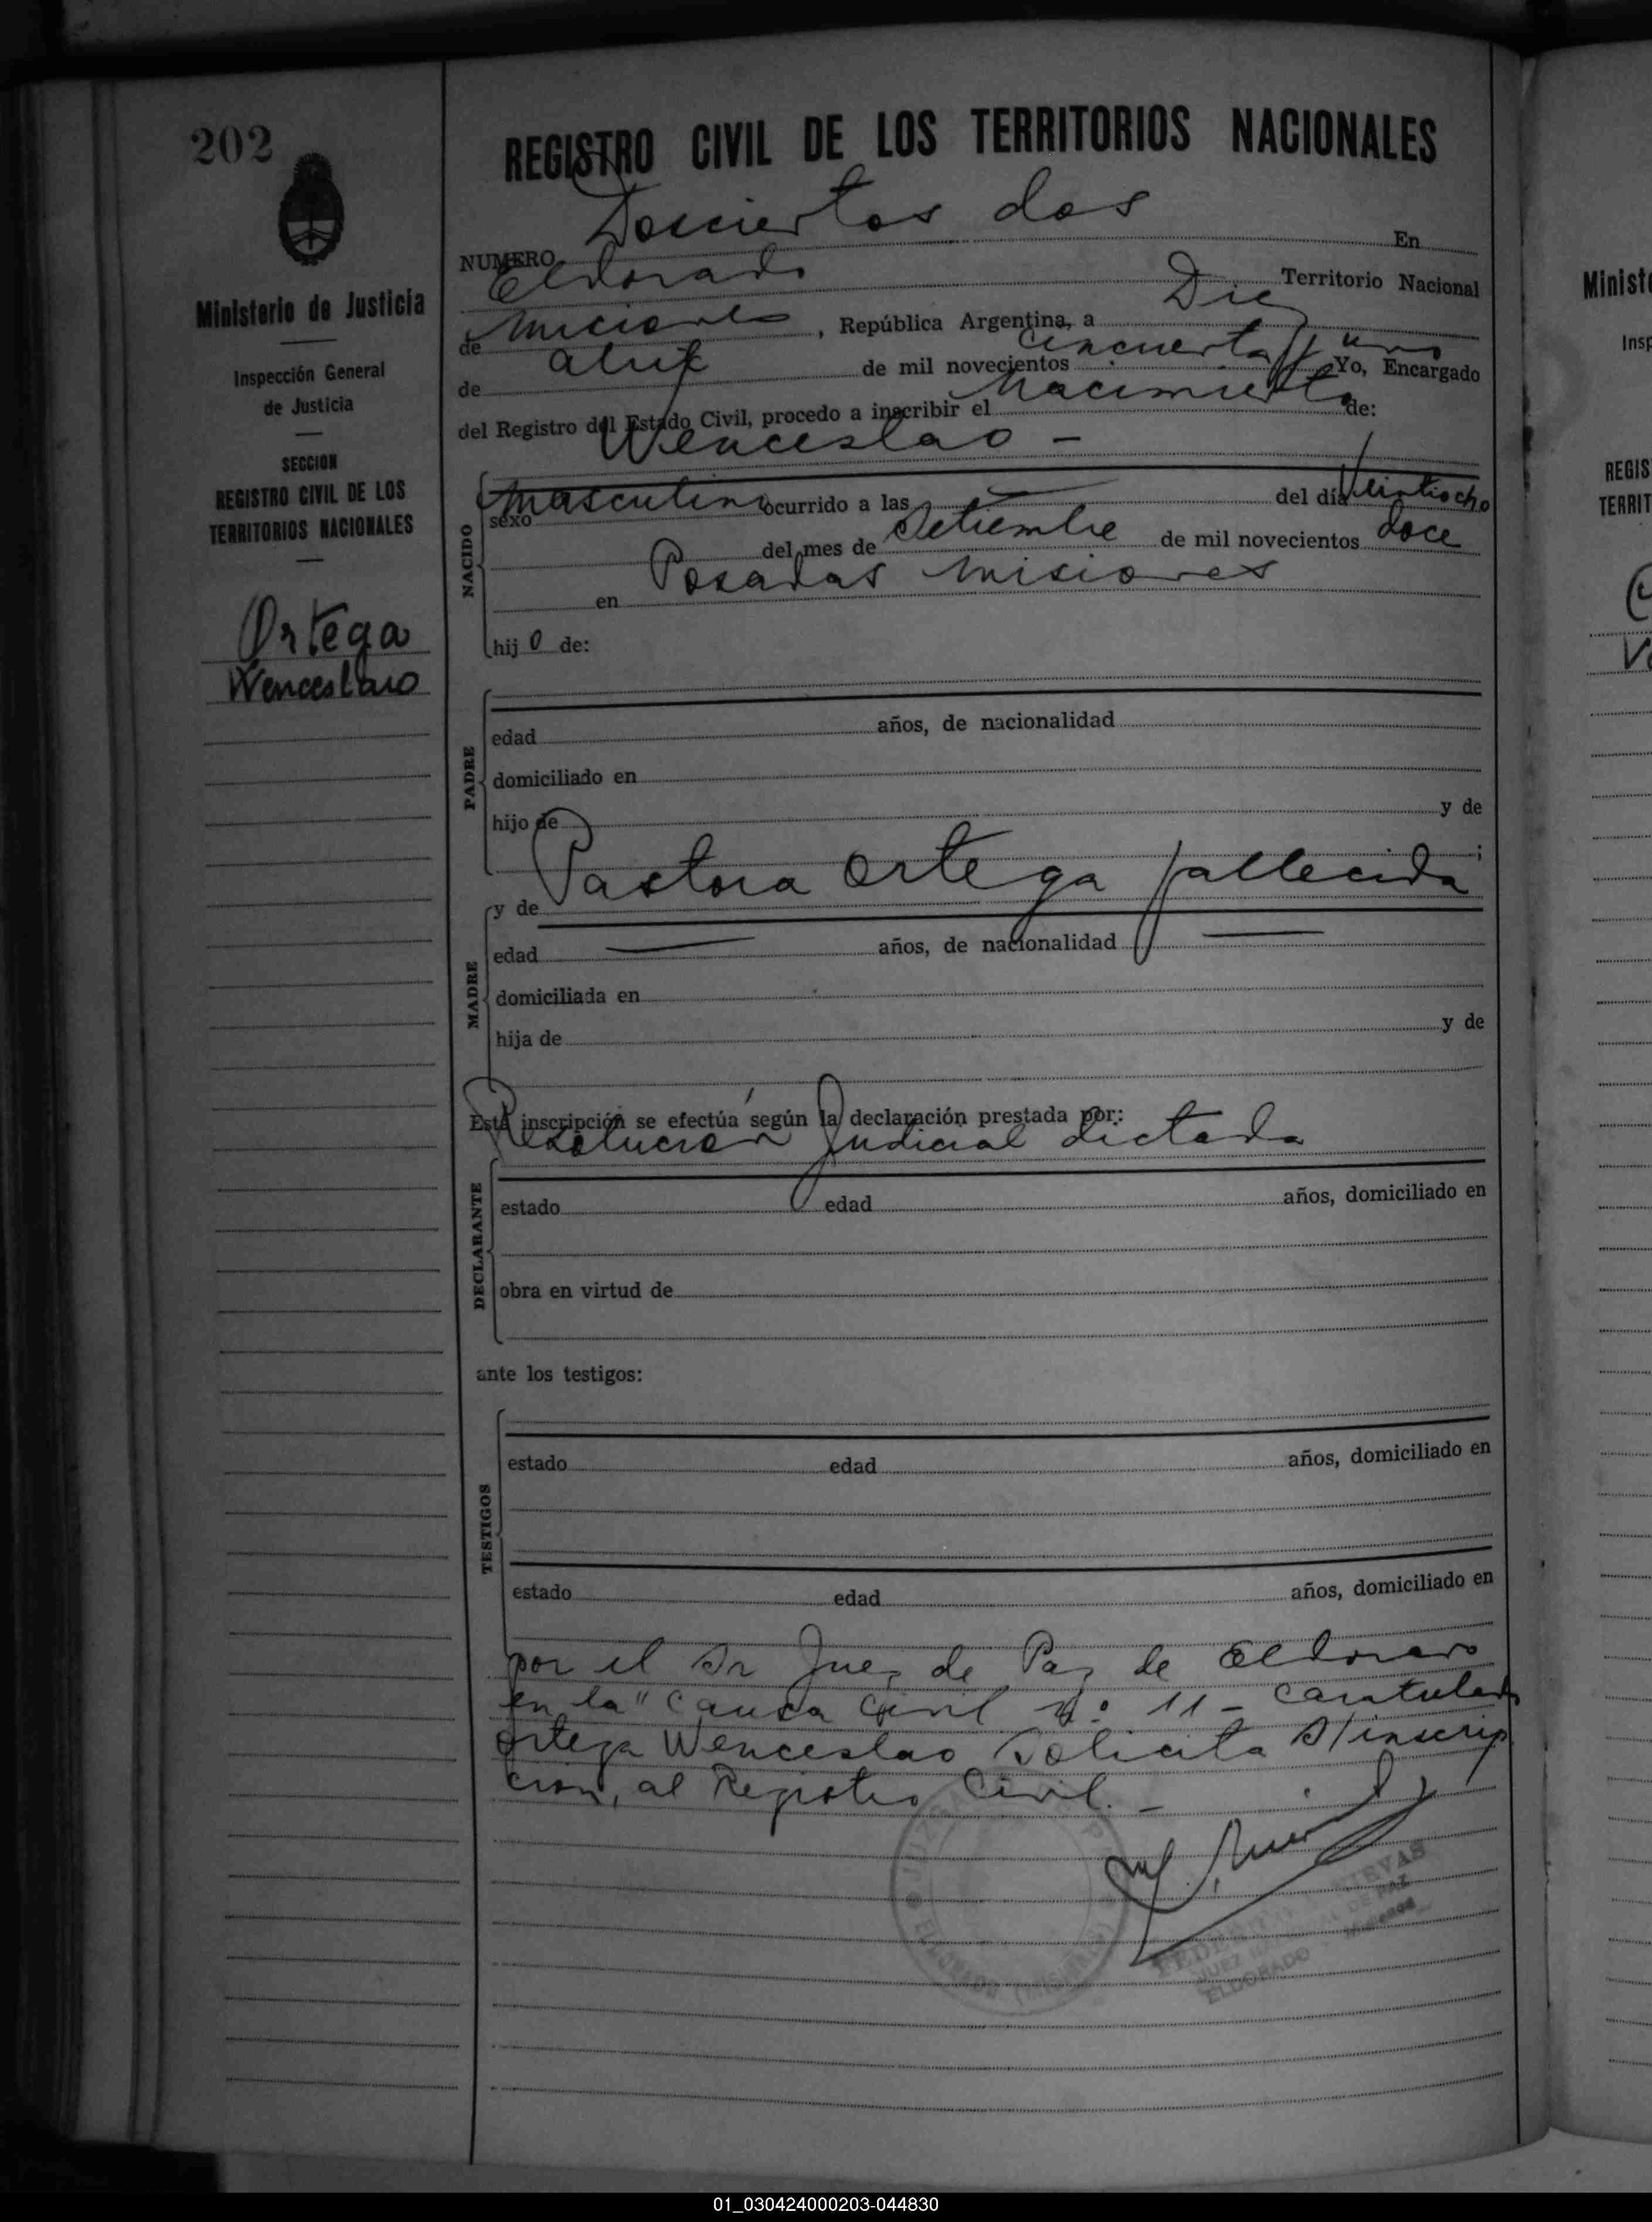 202
Ministerio de Justicia
Inspección General
de Justicia
SECCION
REGISTRO CIVIL DE LOS
TERRITORIOS NACIONALES
Ortega
Wenceslao
REGISTRO CIVIL DE LOS TERRITORIOS NACIONALES
NUMERO Doscientos dos En
Eldorado Territorio Nacional
de Misiones, República Argentina, a Diez
de abril de mil novecientos cincuenta y uno Yo, Encargado
del Registro del Estado Civil, procedo a inscribir el Nacimiento de:
Wenceslao -
NACIDO
sexo masculino ocurrido a las — del día Veintiocho
del mes de Setiembre de mil novecientos doce
en Posadas Misiones
hijo de:
PADRE
edad años, de nacionalidad
domiciliado en
hijo de y de
;
MADRE
y de Pastora Ortega fallecida
edad — años, de nacionalidad —
domiciliada en
hija de y de
Esta inscripción se efectúa según la declaración prestada por:
Resolución Judicial dictada
DECLARANTE
estado edad años, domiciliado en
obra en virtud de
ante los testigos:
TESTIGOS
estado edad años, domiciliado en
estado edad años, domiciliado en
por el Sr Juez de Paz de Eldorado
en la "Causa Civil Nº 11 - Caratulada
Ortega Wenceslao Solicita S/inscrip
cion, al Registro Civil. -
JUEZ DE PAZ
ELDORADO
ELDORADO (MISIONES)
Ministe
Insp
REGIS
TERRIT
01_030424000203-044830